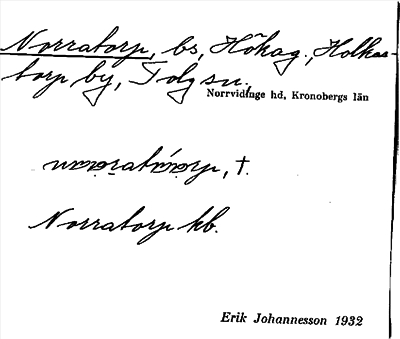 Norratorp, bs, Hökag., Holkas-
torp by, Tolg sn,
Norrvidinge hd, Kronobergs län
†.
Norratorp kb.
Erik Johannesson 1932